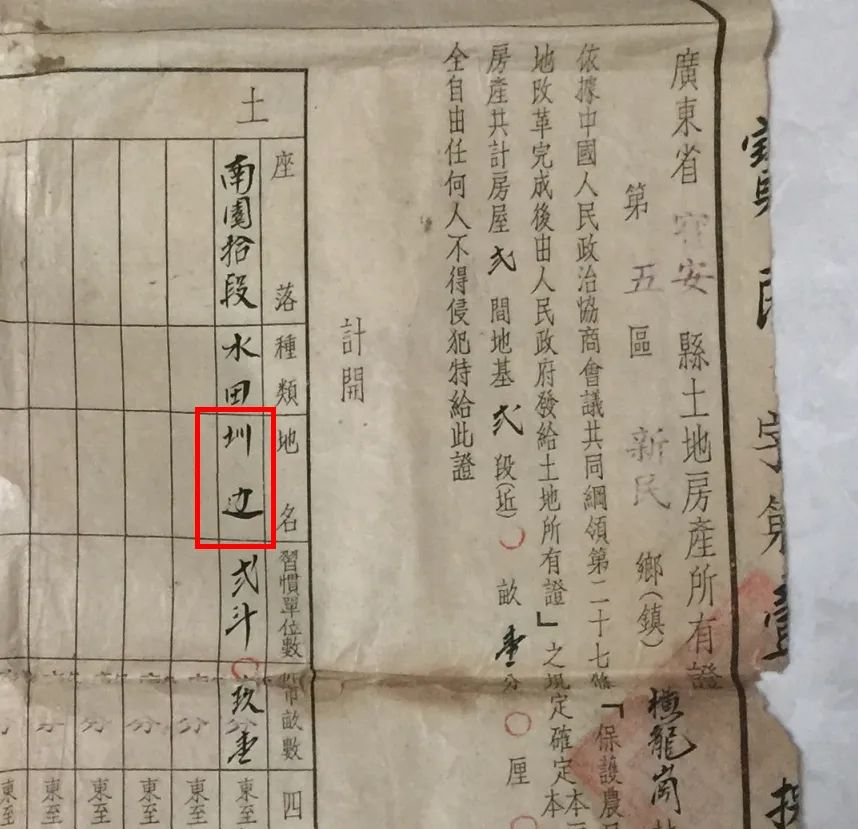 字第壹
廣東省寶安縣土地房產所有證
第五區新民鄉(鎮)橫龍崗
依據中國人民政治協商會議共同綱領第二十七條「保護農
地改革完成後由人民政府發給土地所有證」之規定確定本
房產共計房屋弍間地基弍段(近)〇畝壹分〇厘
全自由任何人不得侵犯特給此證
計開
土
座落
種類
地名
習慣單位數
市畝數
四
南園拾段
水田
圳边
弍斗
〇玖分壹
東至
分
東至
分
東至
分
東至
分
東至
東至